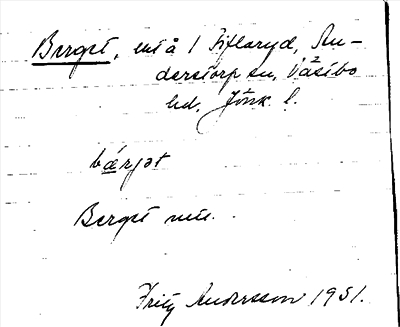 Berget, utå i Fiflaryd, An-
derstorp sn, Västbo
hd, Jönk l.
bærjət
Berget utå.
Fritz Andersson 1951.